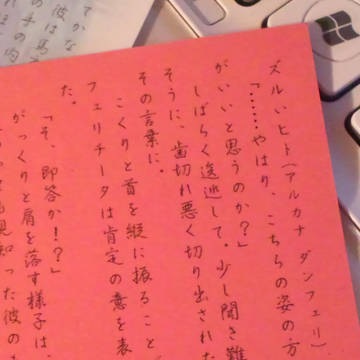 ズルいヒト(アルカナ ダンフェリ)
「……やはり、こちらの姿の方
がいいと思うのか?」
しばらく逡巡して。少し聞き難
そうに、歯切れ悪く切り出された
その言葉に。
こくりと首を縦に振ること
フェリチータは肯定の意を表
た。
「そ、即答か!?」
がっくりと肩を落す様子は、
見知った彼の
てかな
彼は馬
の手の内